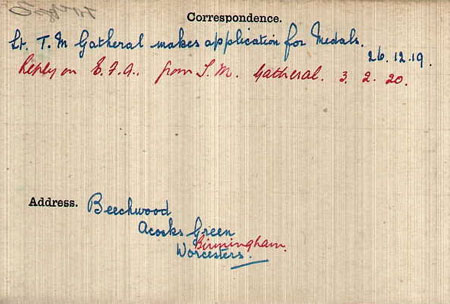 Correspondence.
Lt. T. M Gatheral makes application for Medals.
26.12.19.
Reply on E.F.A. from T.M. Gatheral. 3. 2. 20.
Address. Beechwood
Acocks Green
Birmingham.
Worcesters.